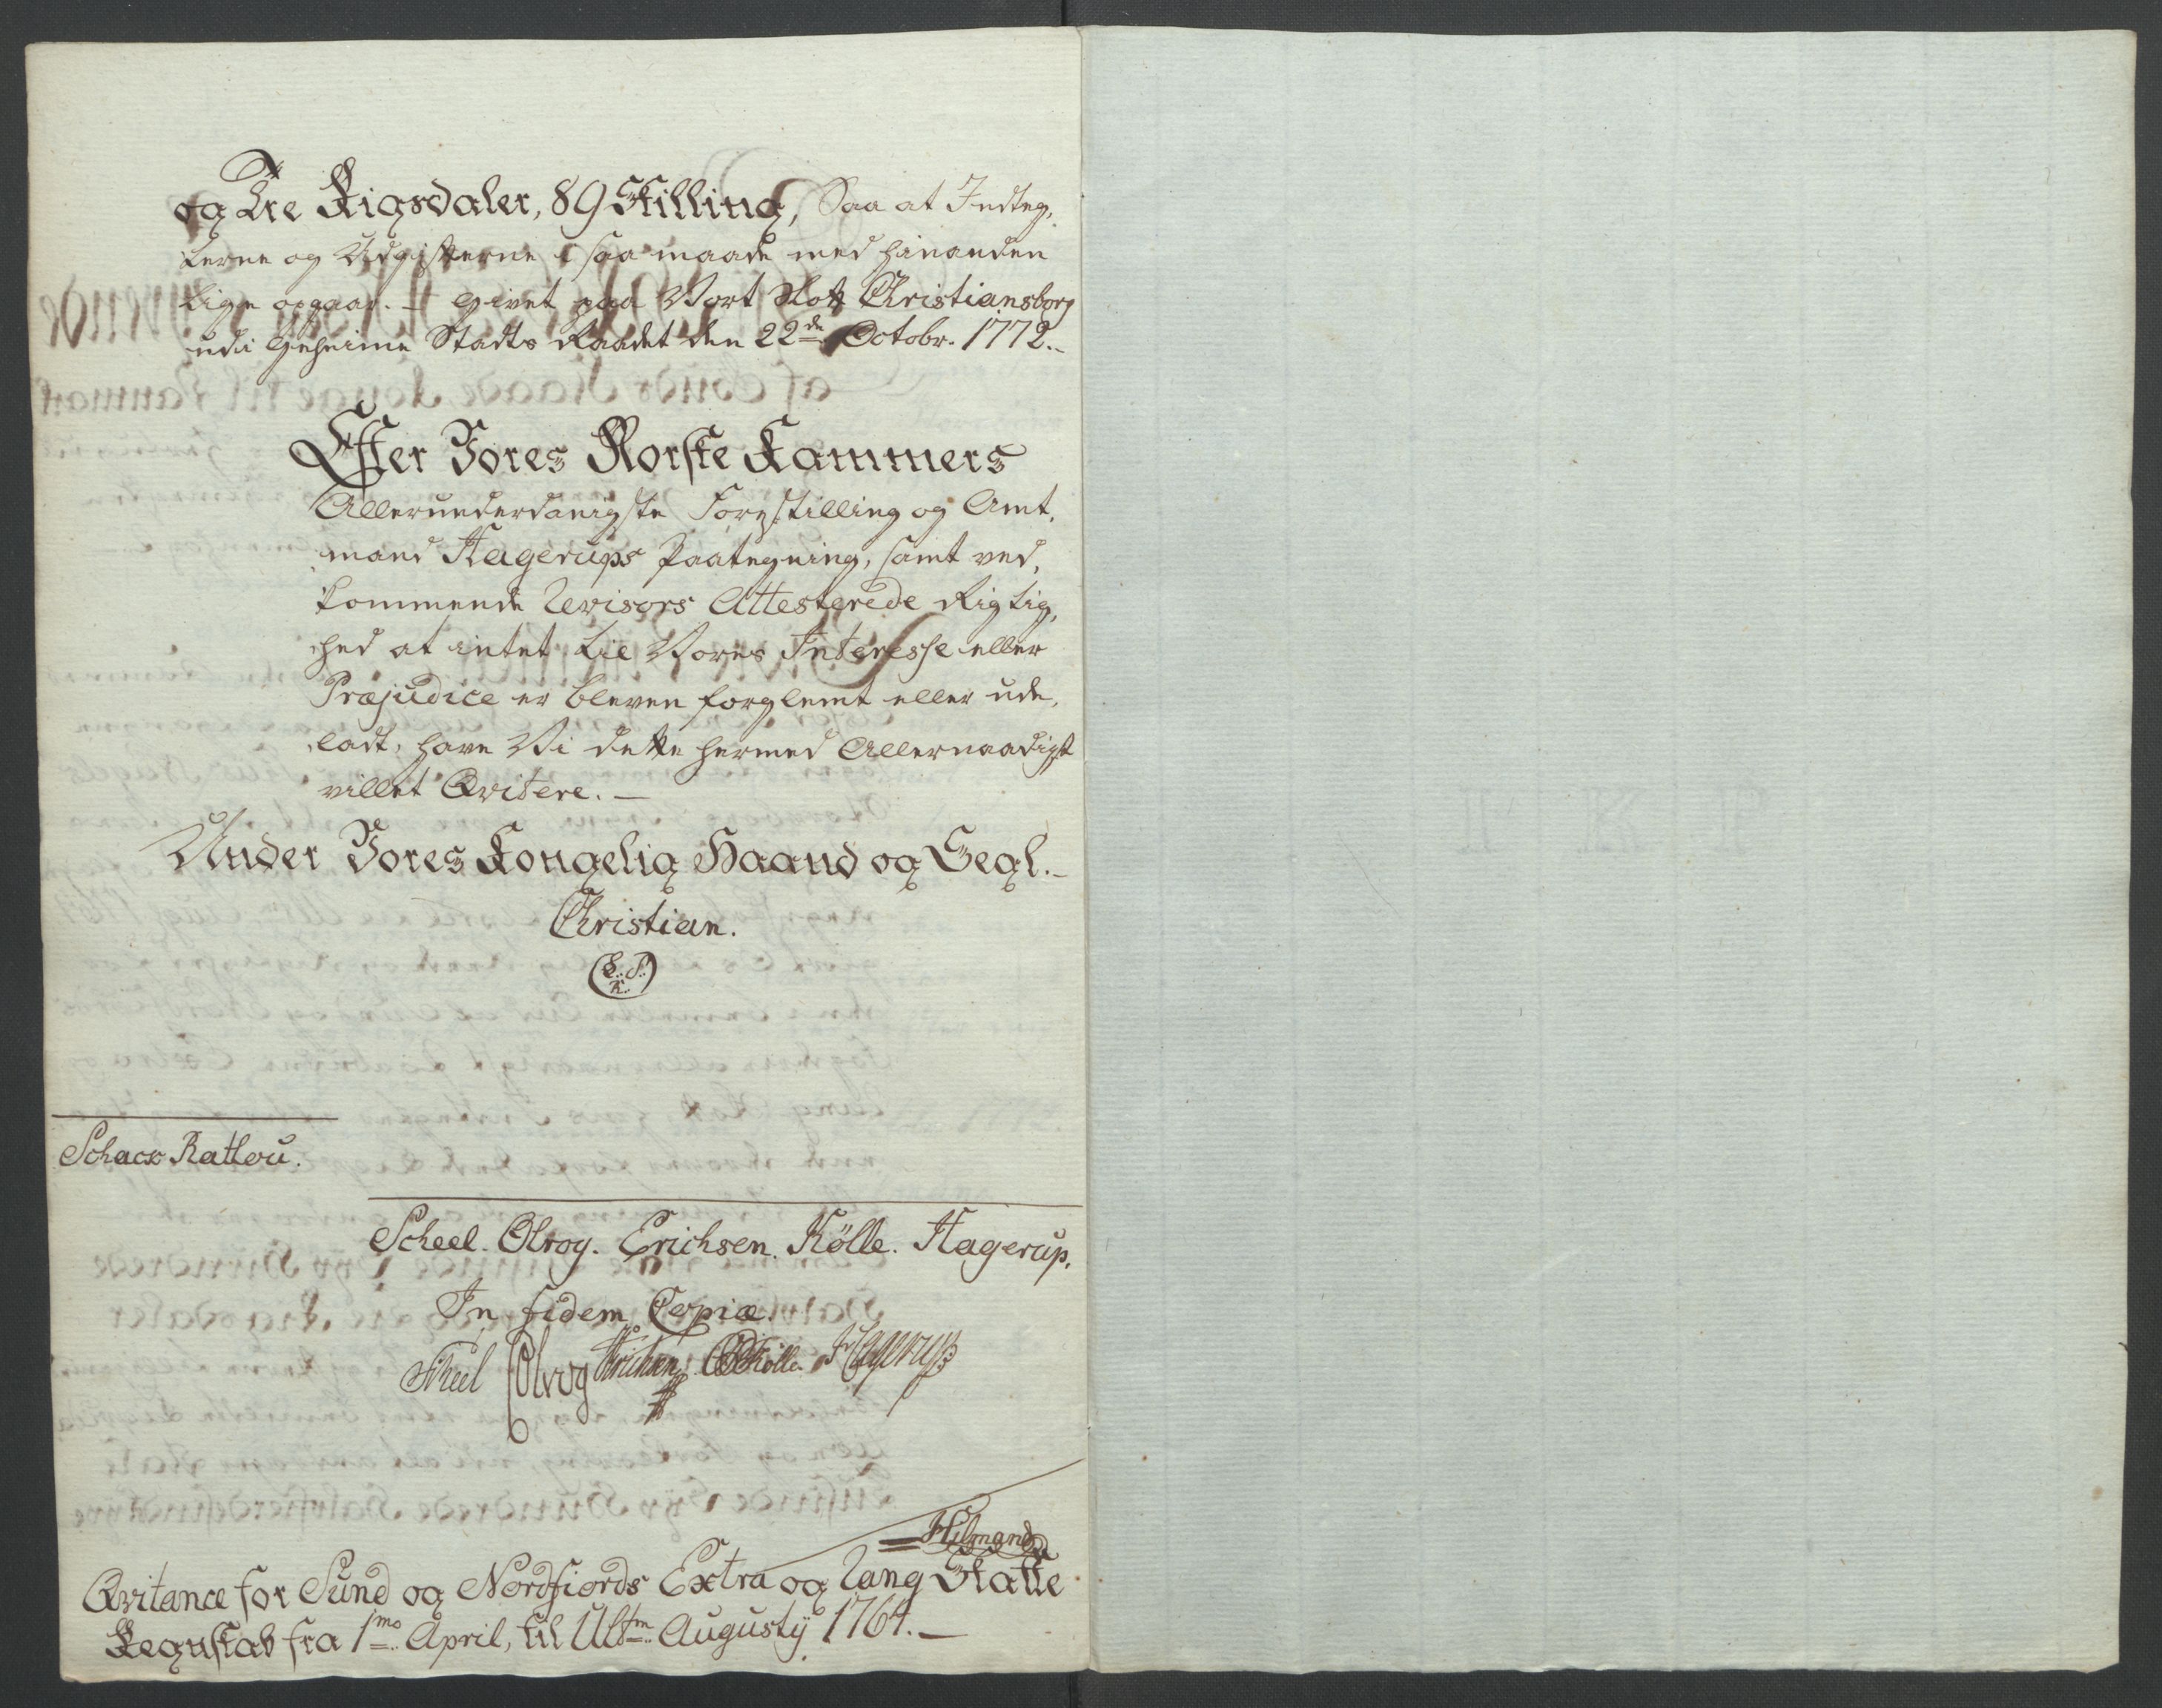 og Tre Rigsdaler, 89 Skilling, Saa at Indteg,
terne og Udgifterne i saa maade med hinanden
lige opgaar. — Givet paa Vort Slott Christiansborg
udi Geheime Stadts Raadet den 22de Octobr. 1772.–
Efter Vores Norske Kammers
Allerunderdanigste Forestilling og Amt,
mand Hagerups Paategning, samt ved,
kommende Revisors Attesterede Rigtig,
hed at intet til Vores Interesse eller
Præjudice er bleven forglemt eller ude,
ladt, have Vi dette hermed Allernaadigst
villet Qvitere. —
Under Vores Kongelig Haand og Segl.–
Christian.
(L. S.
R.)
Schack Ratlou.
Scheel. Olrog. Erichsen. Kölle. Hagerup.
In fidem Copiæ
Scheel Olrog Erichsen Kölle Hagerup
Hilmand
Qvitance for Sund og Nordfiords Extra og Rang Skatte
Regnskab fra 1mo April, til Ultm Augustÿ 1764. —